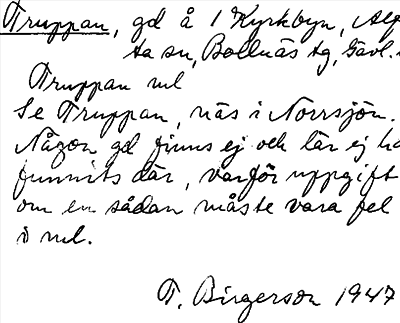 Truppan, gd å 1 Kyrkbyn, Alf
ta sn, Bollnäs tg, Gävl.
Truppan ml
Se Truppan, näs i Norrsjön.
Någon gd finns ej och lär ej ha
funnits där, varför uppgift
om en sådan måste vara fel
i ml.
T. Birgerson 1947